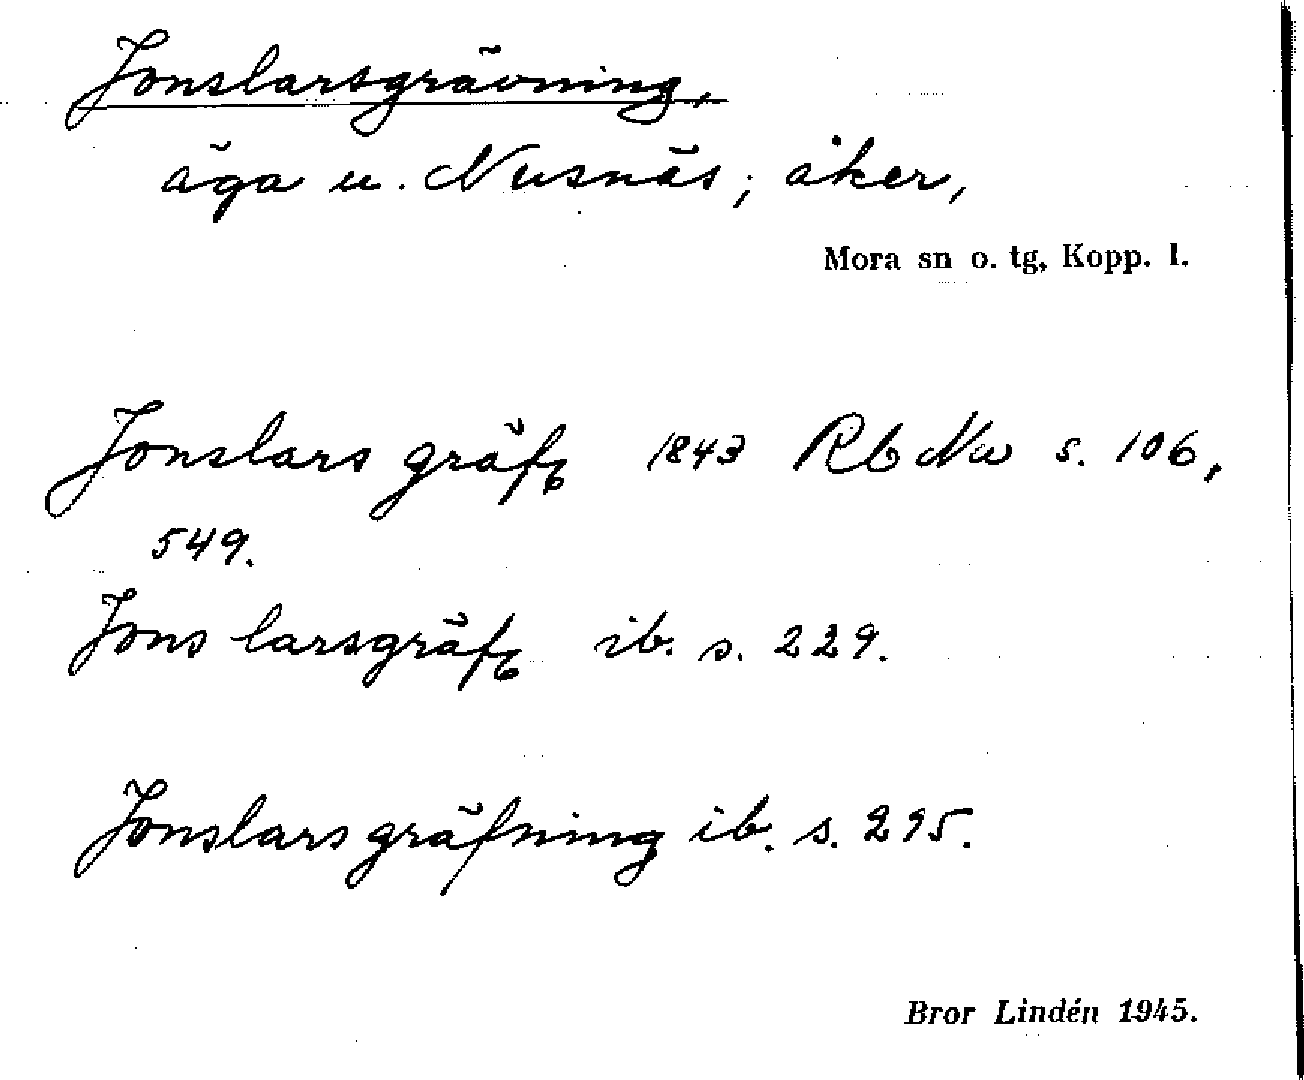 Jonslarsgrävning,
äga u. Nusnäs; åker,
Mora sn o. tg, Kopp. l.
Jonslars gräfg 1843 Rb Nw s. 106,
549.
Jons larsgräfg ib. s. 229.
Jonslars gräfning ib. s. 295.
Bror Lindén 1945.